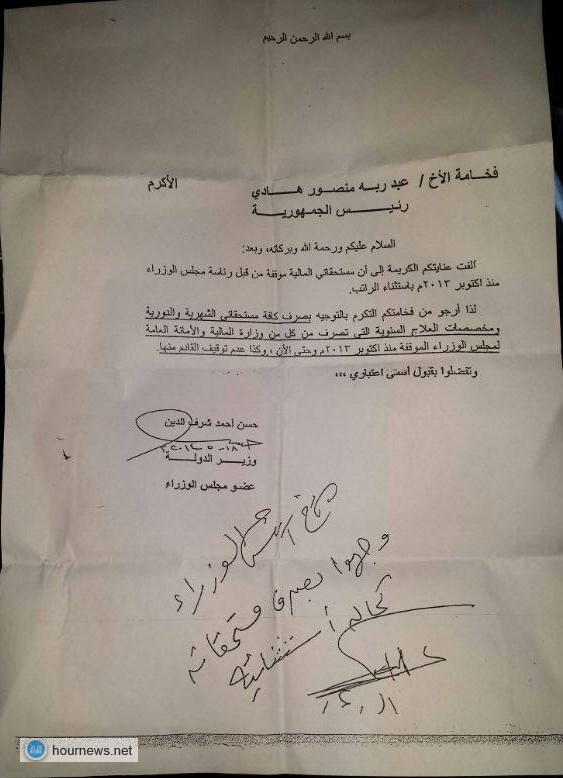 بسم الله الرحمن الرحيم
فخامة الأخ / عبد ربه منصور هادي الأكرم
رئيس الجمهورية
السلام عليكم ورحمة الله وبركاته، وبعد:
ألفت عنايتكم الكريمة إلى أن مستحقاتي المالية موقفة من قبل رئاسة مجلس الوزراء
منذ اكتوبر ٢٠١٣م باستثناء الراتب.
لذا أرجو من فخامتكم التكرم بالتوجيه بصرف كافة مستحقاتي الشهرية والدورية
ومخصصات العلاج السنوية التي تصرف من كل من وزارة المالية والأمانة العامة
لمجلس الوزراء الموقفة منذ اكتوبر ٢٠١٣م وحتى الآن ، وكذا عدم توقيف القادم منها.
وتفضلوا بقبول أسمى اعتباري ،،،
حسن أحمد شرف الدين
وزير الدولة
عضو مجلس الوزراء
الأخ رئيس الوزراء
وجهوا بصرف مستحقاته
كحالة استثنائية
hournews.net